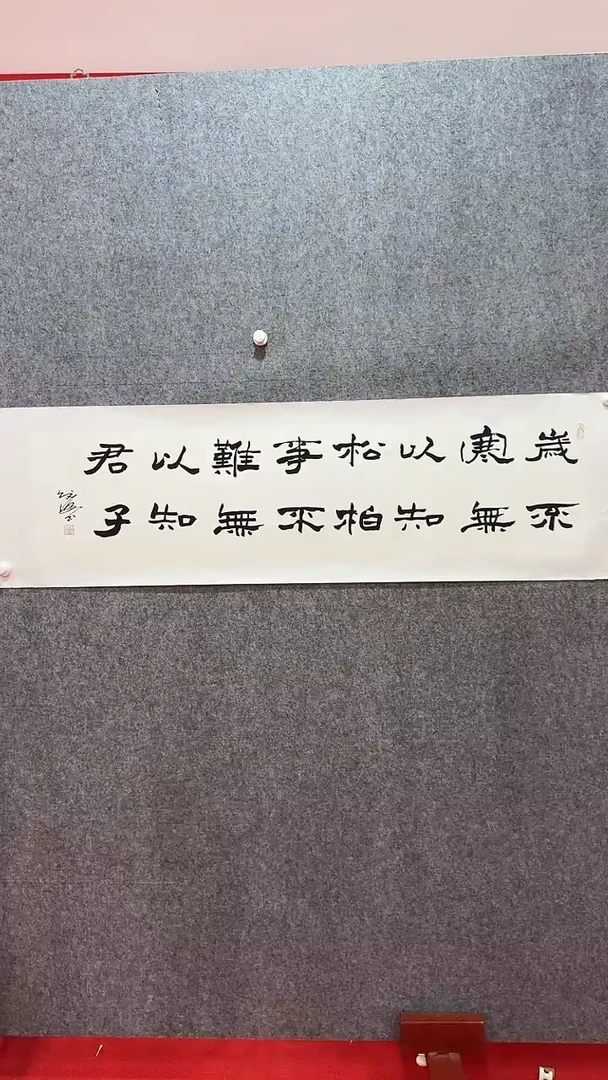 歲不
寒無
以知
松柏
事不
難無
以知
君子